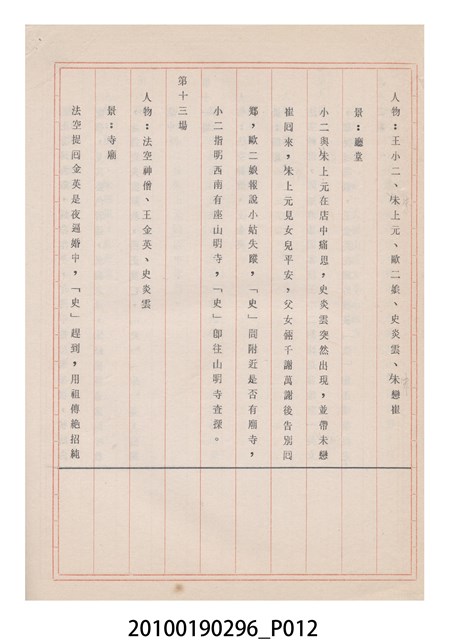 人物：王小二、朱上元、歐二娘、史炎雲、朱戀崔
景：廳堂
小二與朱上元在店中痛思，史炎雲突然出現，並帶朱戀
崔囘來，朱上元見女兒平安，父女倆千謝萬謝後告別囘
鄉，歐二娘報說小姑失蹤，「史」問附近是否有廟寺，
小二指明西南有座山明寺，「史」卽往山明寺查探。
第十三場
人物：法空神僧、王金英、史炎雲
景：寺廟
法空捉囘金英是夜逼婚中，「史」趕到，用祖傳絶招純
20100190296_P012